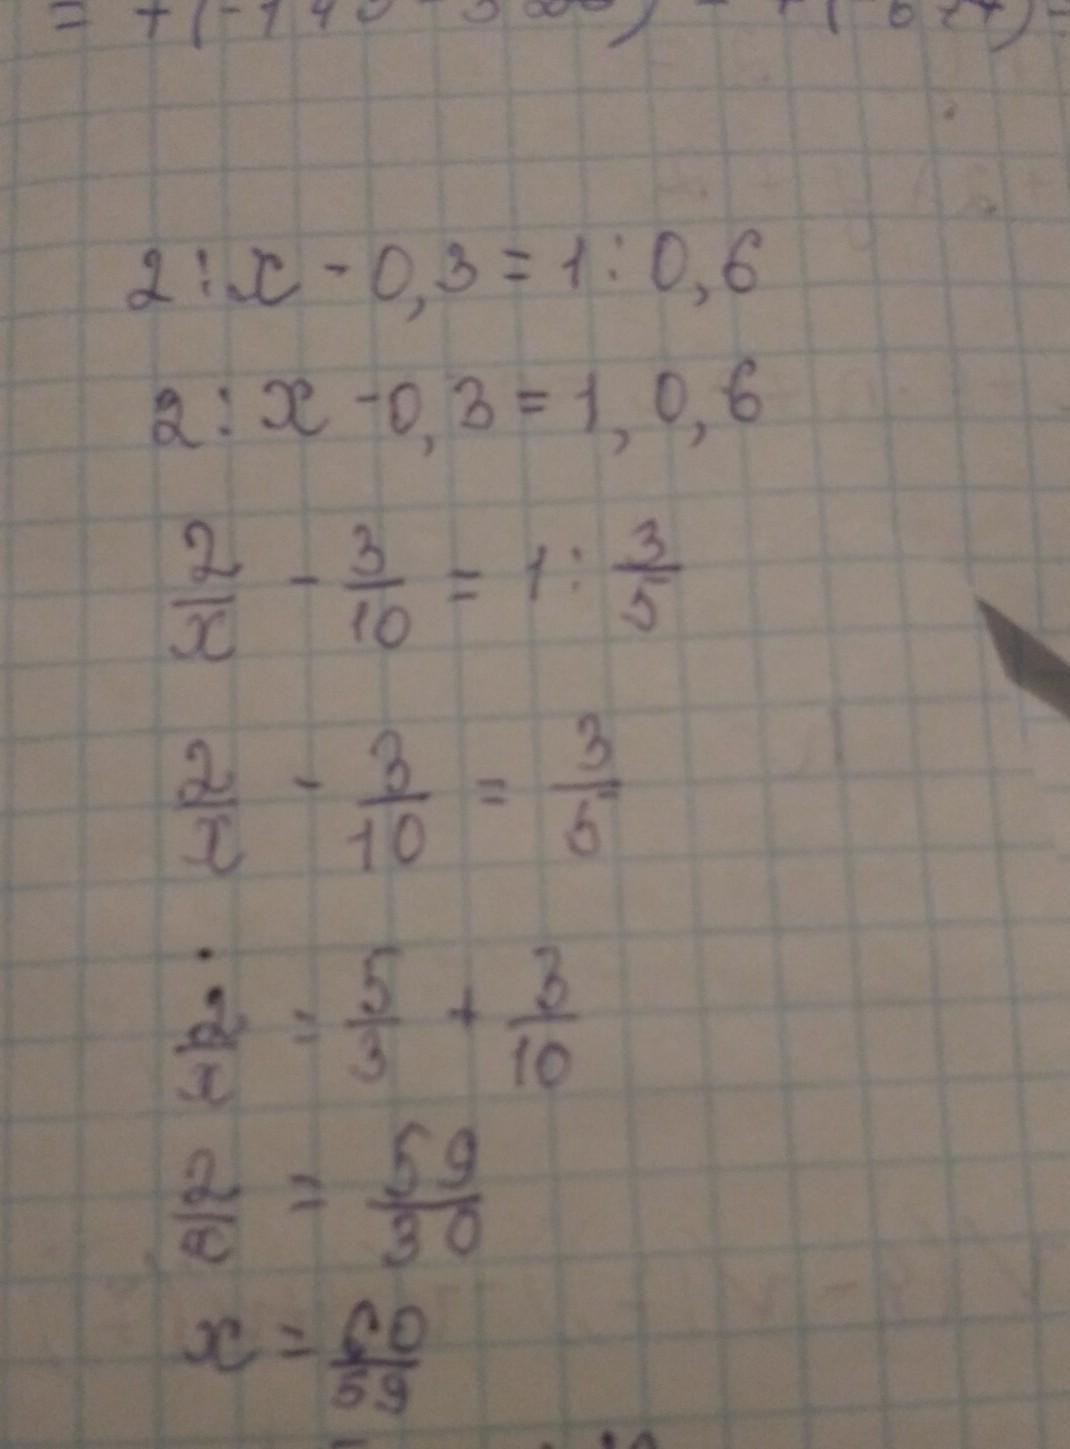 2:x - 0,3 = 1:0,6
2:x - 0,3 = 1,0,6
2/x - 3/10 = 1: 3/5
2/x - 3/10 = 3/5
2/x = 5/3 + 3/10
2/x = 59/30
x = 60/59